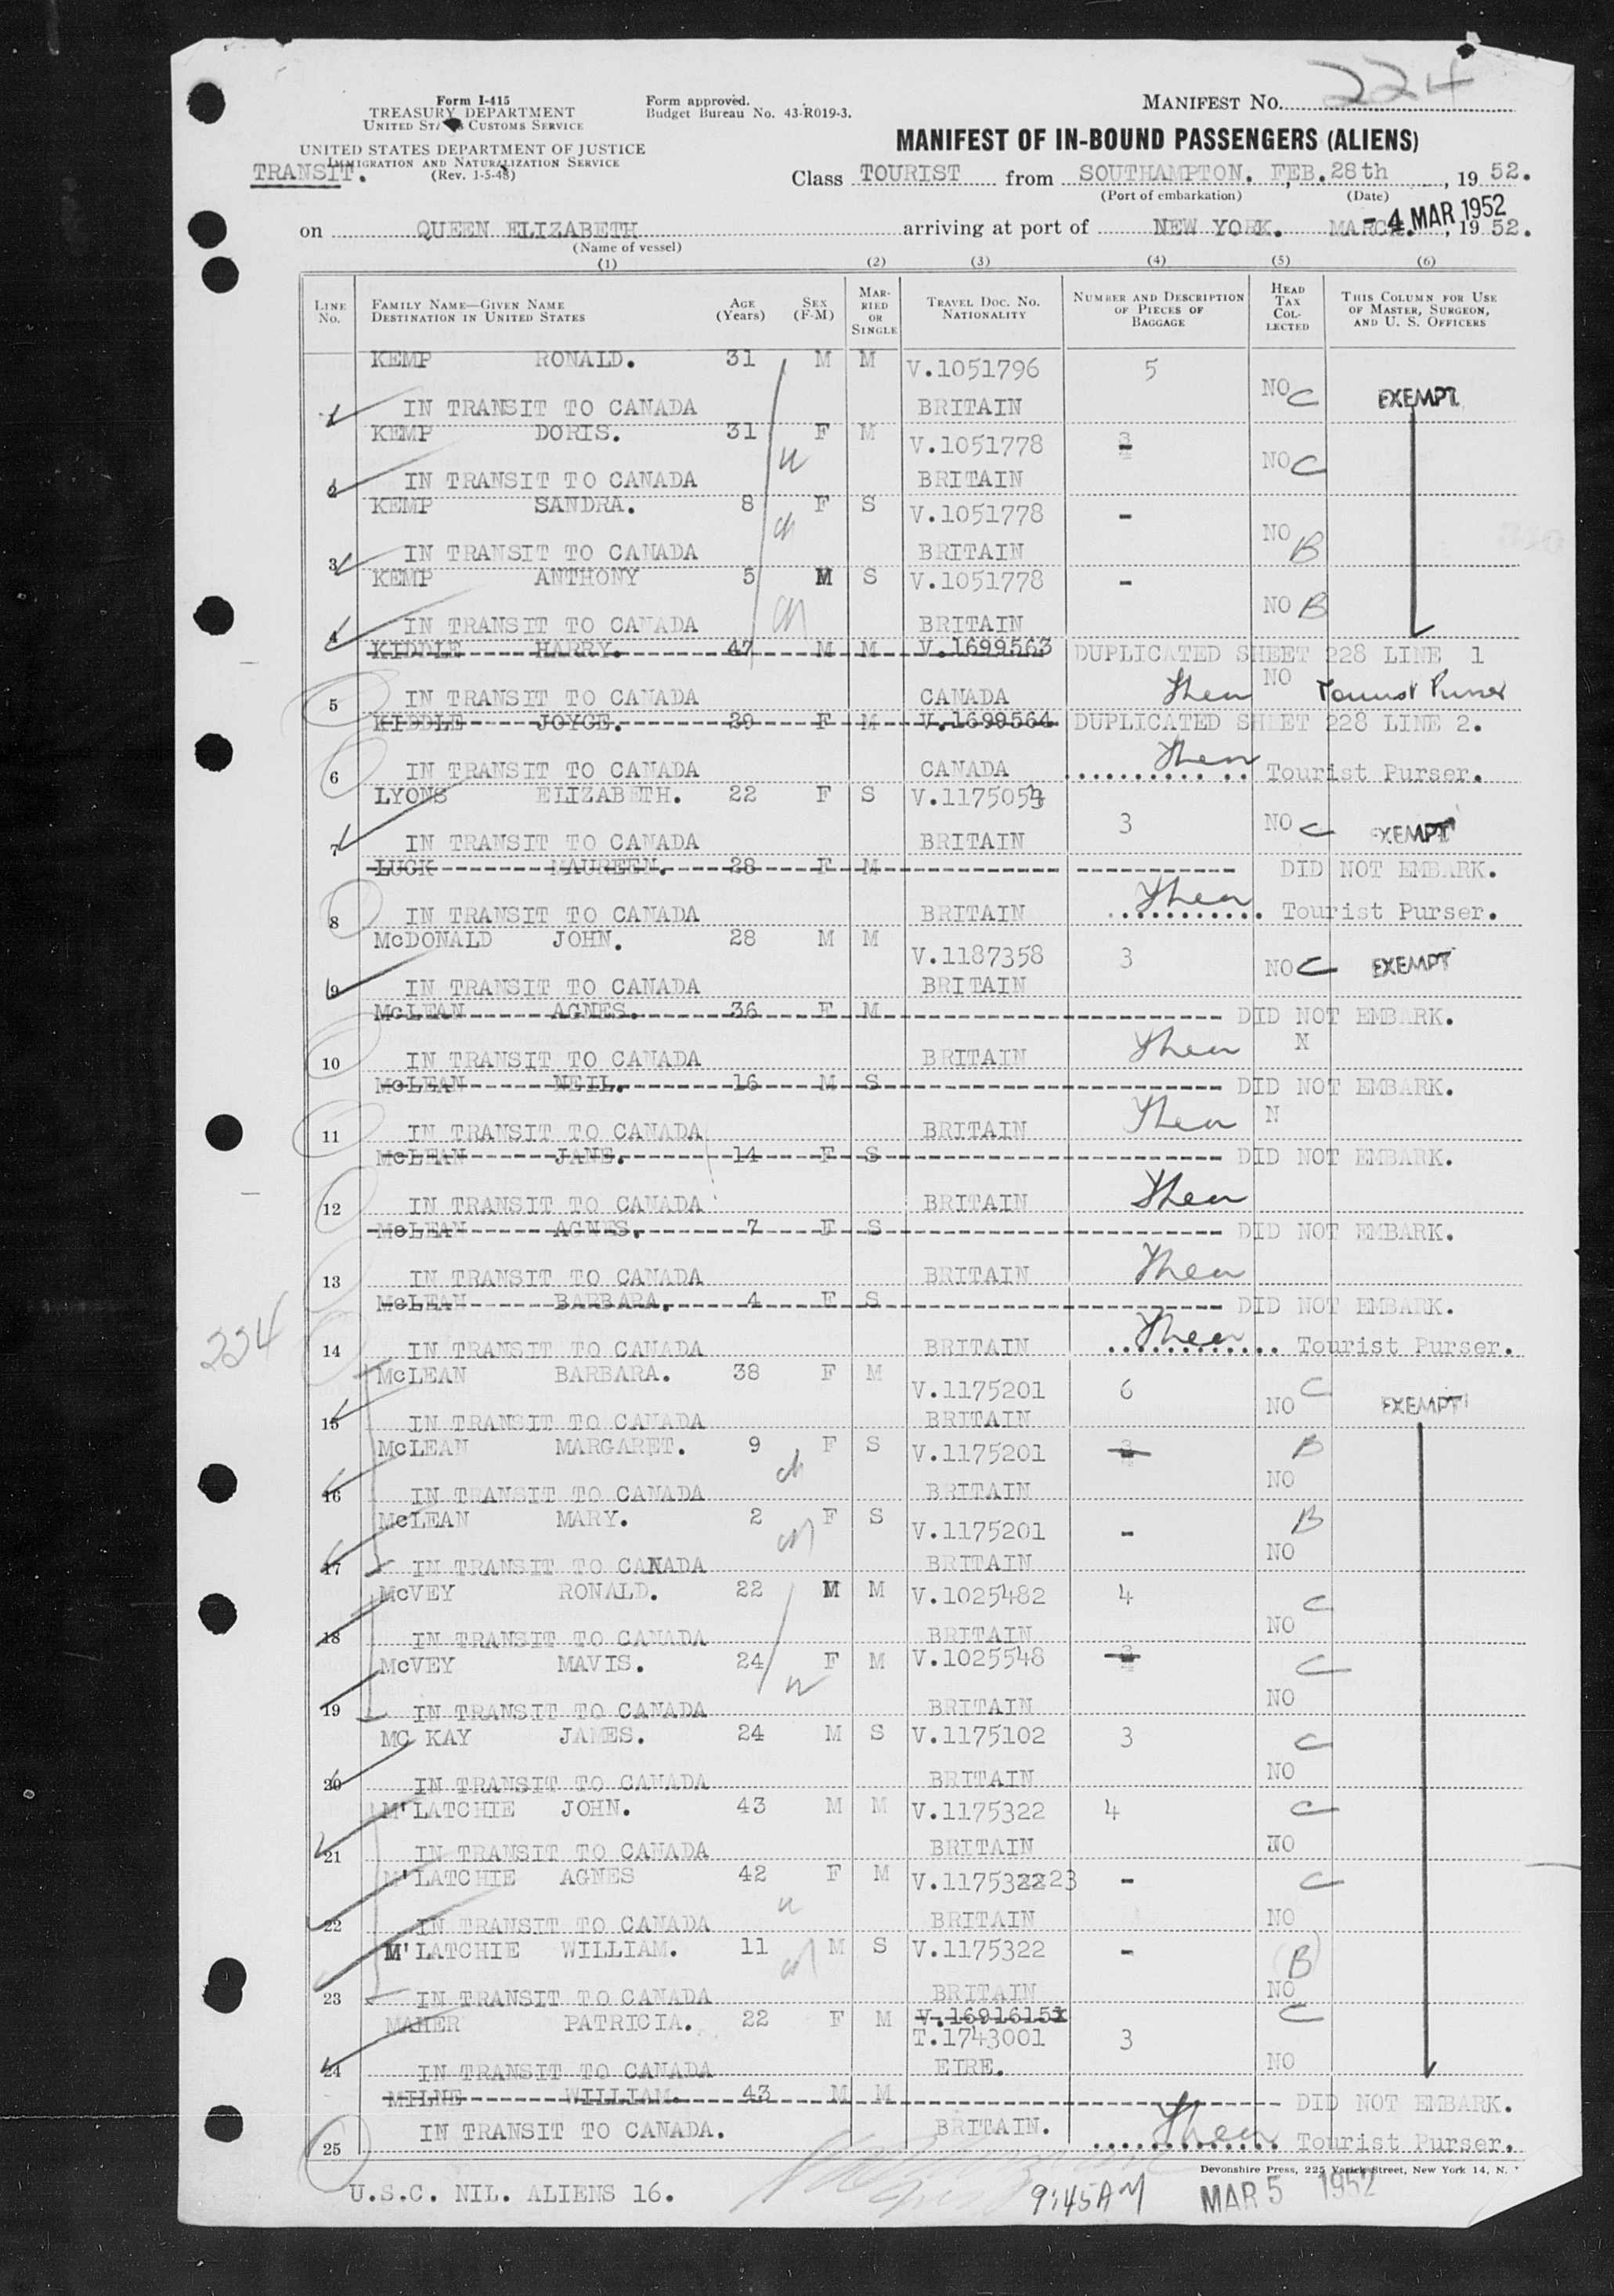 MANIFEST NO. 224
Form I-415
TREASURY DEPARTMENT
UNITED STATES CUSTOMS SERVICE
Form approved.
Budget Bureau No. 43-R019-3.
UNITED STATES DEPARTMENT OF JUSTICE
IMMIGRATION AND NATURALIZATION SERVICE
(Rev. 1-5-48)
TRANSIT.
MANIFEST OF IN-BOUND PASSENGERS (ALIENS)
Class TOURIST from SOUTHAMPTON. FEB. 28th, 19 52.
(Port of embarkation) (Date)
on QUEEN ELIZABETH arriving at port of NEW YORK. MARCH. - 4 MAR 1952, 19 52.
(Name of vessel)
(1) (2) (3) (4) (5) (6)
LINE No. FAMILY NAME—GIVEN NAME DESTINATION IN UNITED STATES AGE (Years) SEX (F-M) MARRIED OR SINGLE TRAVEL DOC. NO. NATIONALITY NUMBER AND DESCRIPTION OF PIECES OF BAGGAGE HEAD TAX COLLECTED THIS COLUMN FOR USE OF MASTER, SURGEON, AND U. S. OFFICERS
KEMP RONALD. 31 M M V.1051796 5
1 IN TRANSIT TO CANADA BRITAIN NO C EXEMPT
KEMP DORIS. 31 F M V.1051778 -
2 IN TRANSIT TO CANADA BRITAIN NO C
KEMP SANDRA. 8 F S V.1051778 -
3 IN TRANSIT TO CANADA BRITAIN NO B
KEMP ANTHONY 5 M S V.1051778 -
4 IN TRANSIT TO CANADA BRITAIN NO B
KIDDLE HARRY. 47 M M V.1699563 DUPLICATED SHEET 228 LINE 1
5 IN TRANSIT TO CANADA CANADA NO Tourist Purser
KIDDLE JOYCE. 29 F M V.1699564 DUPLICATED SHEET 228 LINE 2.
6 IN TRANSIT TO CANADA CANADA Tourist Purser.
LYONS ELIZABETH. 22 F S V.1175054 3
7 IN TRANSIT TO CANADA BRITAIN NO C EXEMPT
LUCK MAUREEN. 28 F M DID NOT EMBARK.
8 IN TRANSIT TO CANADA BRITAIN Tourist Purser.
McDONALD JOHN. 28 M M V.1187358 3
9 IN TRANSIT TO CANADA BRITAIN NO C EXEMPT
McLEAN AGNES. 36 F M DID NOT EMBARK.
10 IN TRANSIT TO CANADA BRITAIN N
McLEAN NEIL. 16 M S DID NOT EMBARK.
11 IN TRANSIT TO CANADA BRITAIN N
McLEAN JANE. 14 F S DID NOT EMBARK.
12 IN TRANSIT TO CANADA BRITAIN
McLEAN AGNES. 7 F S DID NOT EMBARK.
13 IN TRANSIT TO CANADA BRITAIN
McLEAN BARBARA. 4 F S DID NOT EMBARK.
224
14 IN TRANSIT TO CANADA BRITAIN Tourist Purser.
McLEAN BARBARA. 38 F M V.1175201 6 C
15 IN TRANSIT TO CANADA BRITAIN NO EXEMPT
McLEAN MARGARET. 9 F S V.1175201 - B
16 IN TRANSIT TO CANADA BRITAIN NO
McLEAN MARY. 2 F S V.1175201 - B
17 IN TRANSIT TO CANADA BRITAIN NO
McVEY RONALD. 22 M M V.1025482 4 C
18 IN TRANSIT TO CANADA BRITAIN NO
McVEY MAVIS. 24 F M V.1025548 - C
19 IN TRANSIT TO CANADA BRITAIN NO
MC KAY JAMES. 24 M S V.1175102 3 C
20 IN TRANSIT TO CANADA BRITAIN NO
M'LATCHIE JOHN. 43 M M V.1175322 4 C
21 IN TRANSIT TO CANADA BRITAIN NO
M'LATCHIE AGNES 42 F M V.117532223 - C
22 IN TRANSIT TO CANADA BRITAIN NO
M'LATCHIE WILLIAM. 11 M S V.1175322 - B
23 IN TRANSIT TO CANADA BRITAIN NO
MAHER PATRICIA. 22 F M V.1691615 C
T.1743001 3
24 IN TRANSIT TO CANADA EIRE. NO
MILNE WILLIAM. 43 M M DID NOT EMBARK.
25 IN TRANSIT TO CANADA. BRITAIN. Tourist Purser.
Devonshire Press, 225 Varick Street, New York 14, N.
U.S.C. NIL. ALIENS 16. 9:45AM MAR 5 1952